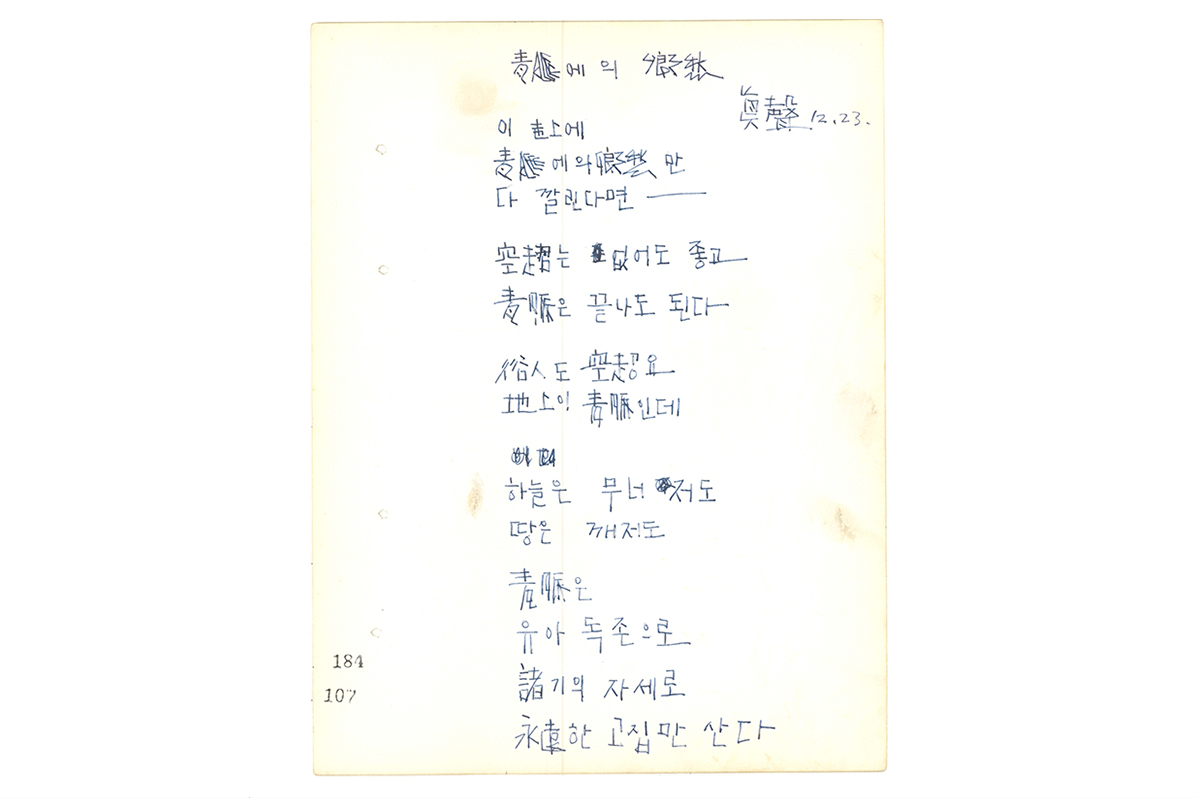 青 에의 鄕愁
眞聲 12.23.
이 노상에
青 에의 鄕愁 만
다 깔린다면 ——
空超는 없어도 좋고
青脈은 끝나도 된다
俗人도 空超요
地上이 青脈인데
하늘은 무너저도
땅은 깨저도
青脈은
유아 독존으로
諸기의 자세로
永遠한 고집만 산다
184
107